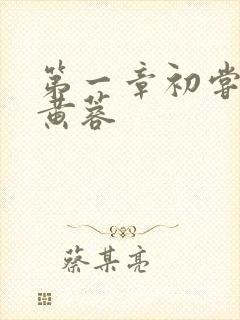 第一章初尝
黄蓉
蔡某亮